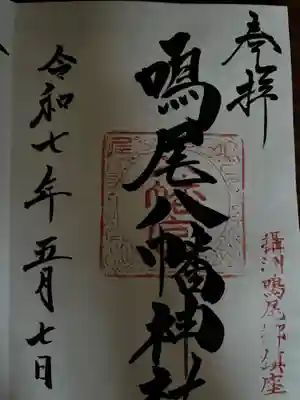 奉拝
攝州鳴尾郷鎮座
鳴尾八幡神社
令和七年五月七日